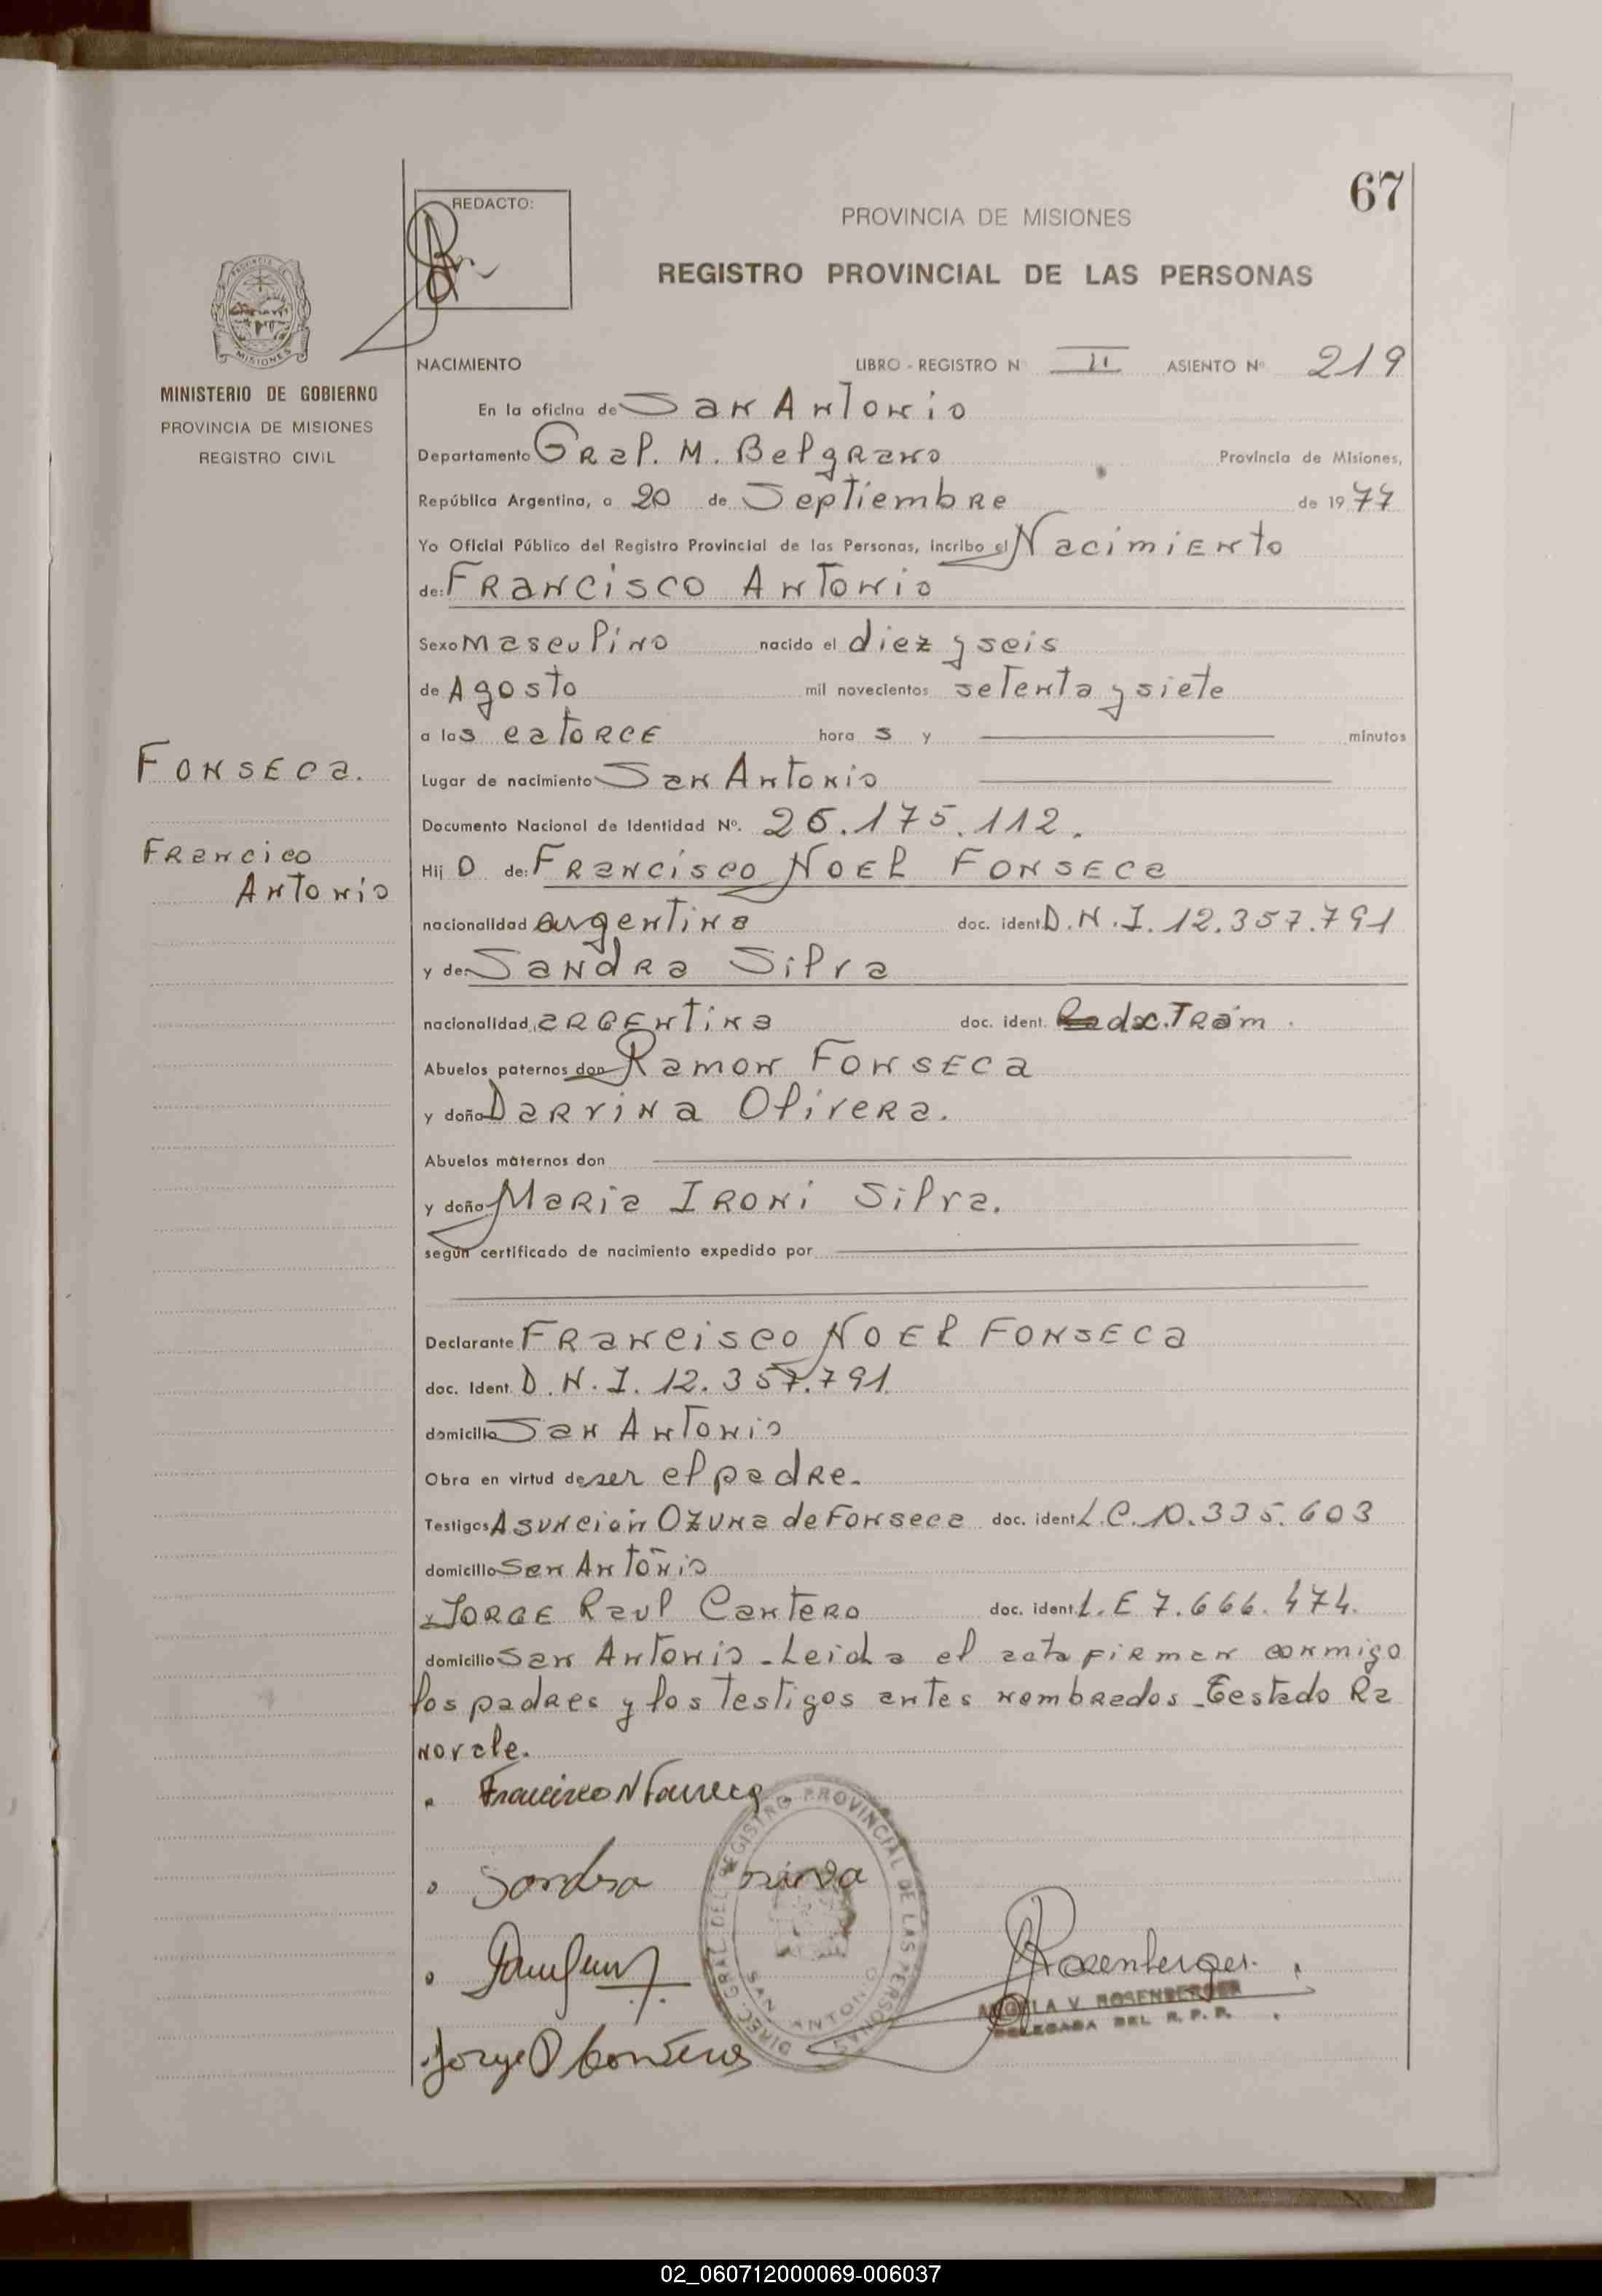 67
REDACTO:
PROVINCIA DE MISIONES
REGISTRO PROVINCIAL DE LAS PERSONAS
MISIONES
MINISTERIO DE GOBIERNO
PROVINCIA DE MISIONES
REGISTRO CIVIL
NACIMIENTO LIBRO - REGISTRO N° II ASIENTO Nº 219
En la oficina de San Antonio
Departamento Gral. M. Belgrano Provincia de Misiones,
República Argentina, a 20 de Septiembre de 1977
Yo Oficial Público del Registro Provincial de las Personas, incribo el Nacimiento
de: Francisco Antonio
Sexo masculino nacido el diez y seis
de Agosto mil novecientos setenta y siete
a las catorce hora s y minutos
Fonseca.
Lugar de nacimiento San Antonio
Documento Nacional de Identidad Nº. 26.175.112.
Francico
Antonio
Hij o de: Francisco Noel Fonseca
nacionalidad argentina doc. ident. D.N.I. 12.357.791
y de: Sandra Silva
nacionalidad argentina doc. ident. Ra doc. Tram.
Abuelos paternos don Ramon Fonseca
y doña Darvina Olivera.
Abuelos maternos don
y doña Maria Ironi Silva.
según certificado de nacimiento expedido por
Declarante Francisco Noel Fonseca
doc. Ident. D.N.I. 12.357.791.
domicilio San Antonio
Obra en virtud de ser el padre.
Testigos Asunción Ozuna de Fonseca doc. ident. L.C. 10.335.603
domicilio San Antonio
y Jorge Raul Cantero doc. ident. L.E 7.666.474.
domicilio San Antonio - Leida el acta firman conmigo
los padres y los testigos antes nombrados - Testado Ra
no vale.
Francisco N Fonseca
Sandra Silva
DIREC. GRAL. DEL REGISTRO PROVINCIAL DE LAS PERSONAS
SAN ANTONIO
Rosenberger.
ANGELA V. ROSENBERGER
DELEGADA DEL R. P. P.
Jorge R Cantero
02_060712000069-006037